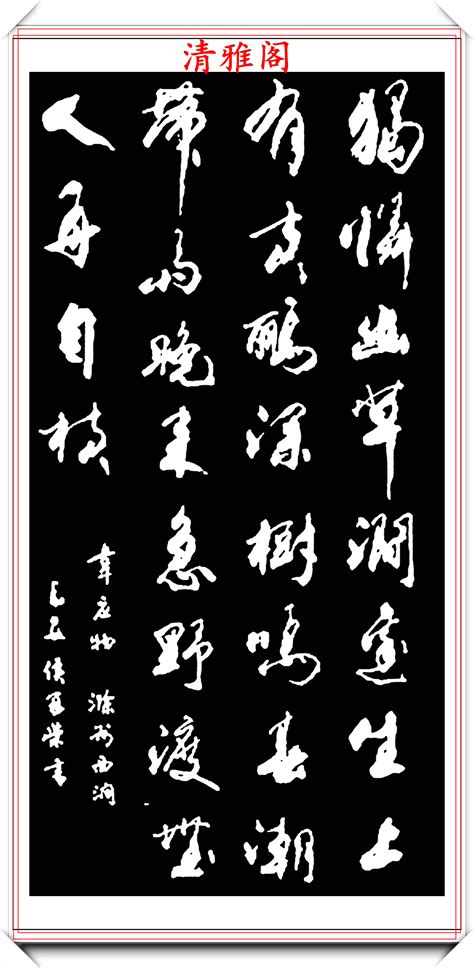 清雅阁
獨憐幽草澗邊生上
有黄鸝深樹鳴春潮
帶雨晚来急野渡無
人舟自横
韋應物 滁州西澗
書